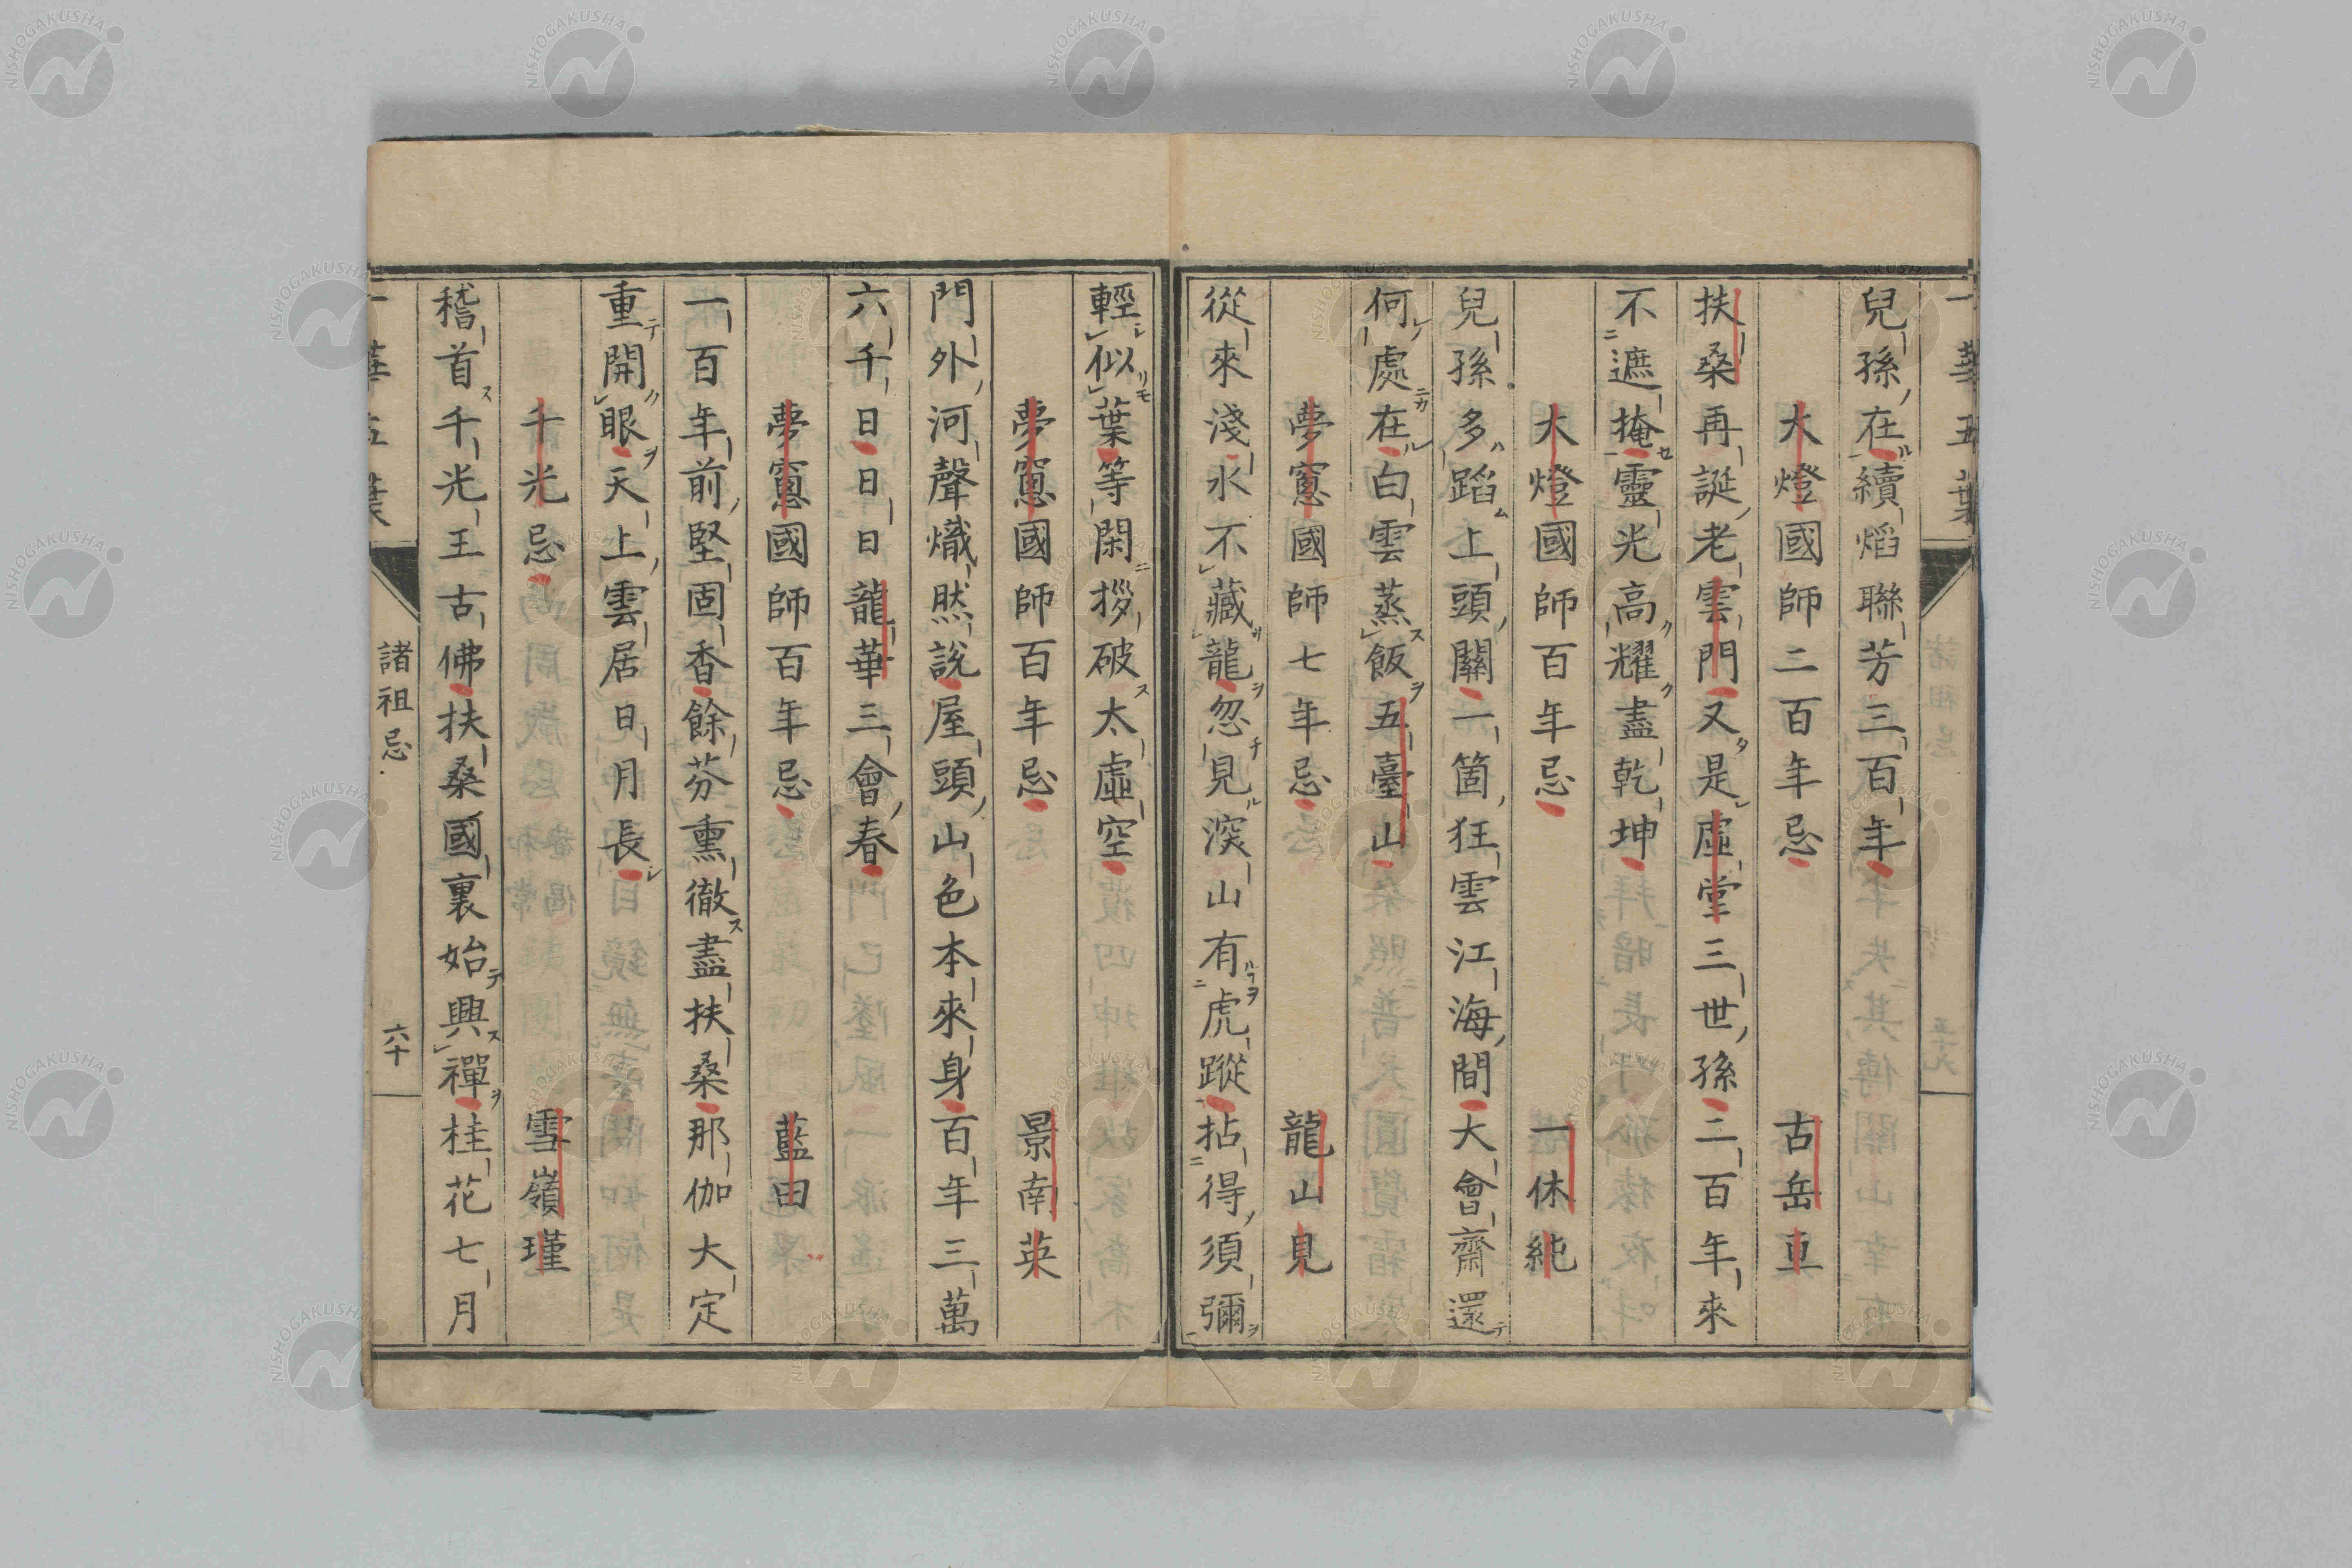 兒孫在續焰聯芳三百年
大燈國師二百年忌 古岳亘
扶桑再誕老雲門又是虛堂三世孫二百年來
不遮掩靈光高耀盡乾坤
大燈國師百年忌 一休純
兒孫多蹈上頭關一箇狂雲江海間大會齋還
何處在白雲蒸飯五臺山
夢窻國師七年忌 龍山見
從來淺水不藏龍忽見深山有虎蹤拈得須彌
輕似葉等閑拶破太虛空
夢窻國師百年忌 景南英
門外河聲熾然說屋頭山色本來身百年三萬
六千日日日龍華三會春
夢窻國師百年忌 藍田
一百年前堅固香餘芬熏徹盡扶桑那伽大定
重開眼天上雲居日月長
千光忌 雪嶺瑾
稽首千光王古佛扶桑國裏始興禪桂花七月
諸祖忌 六十